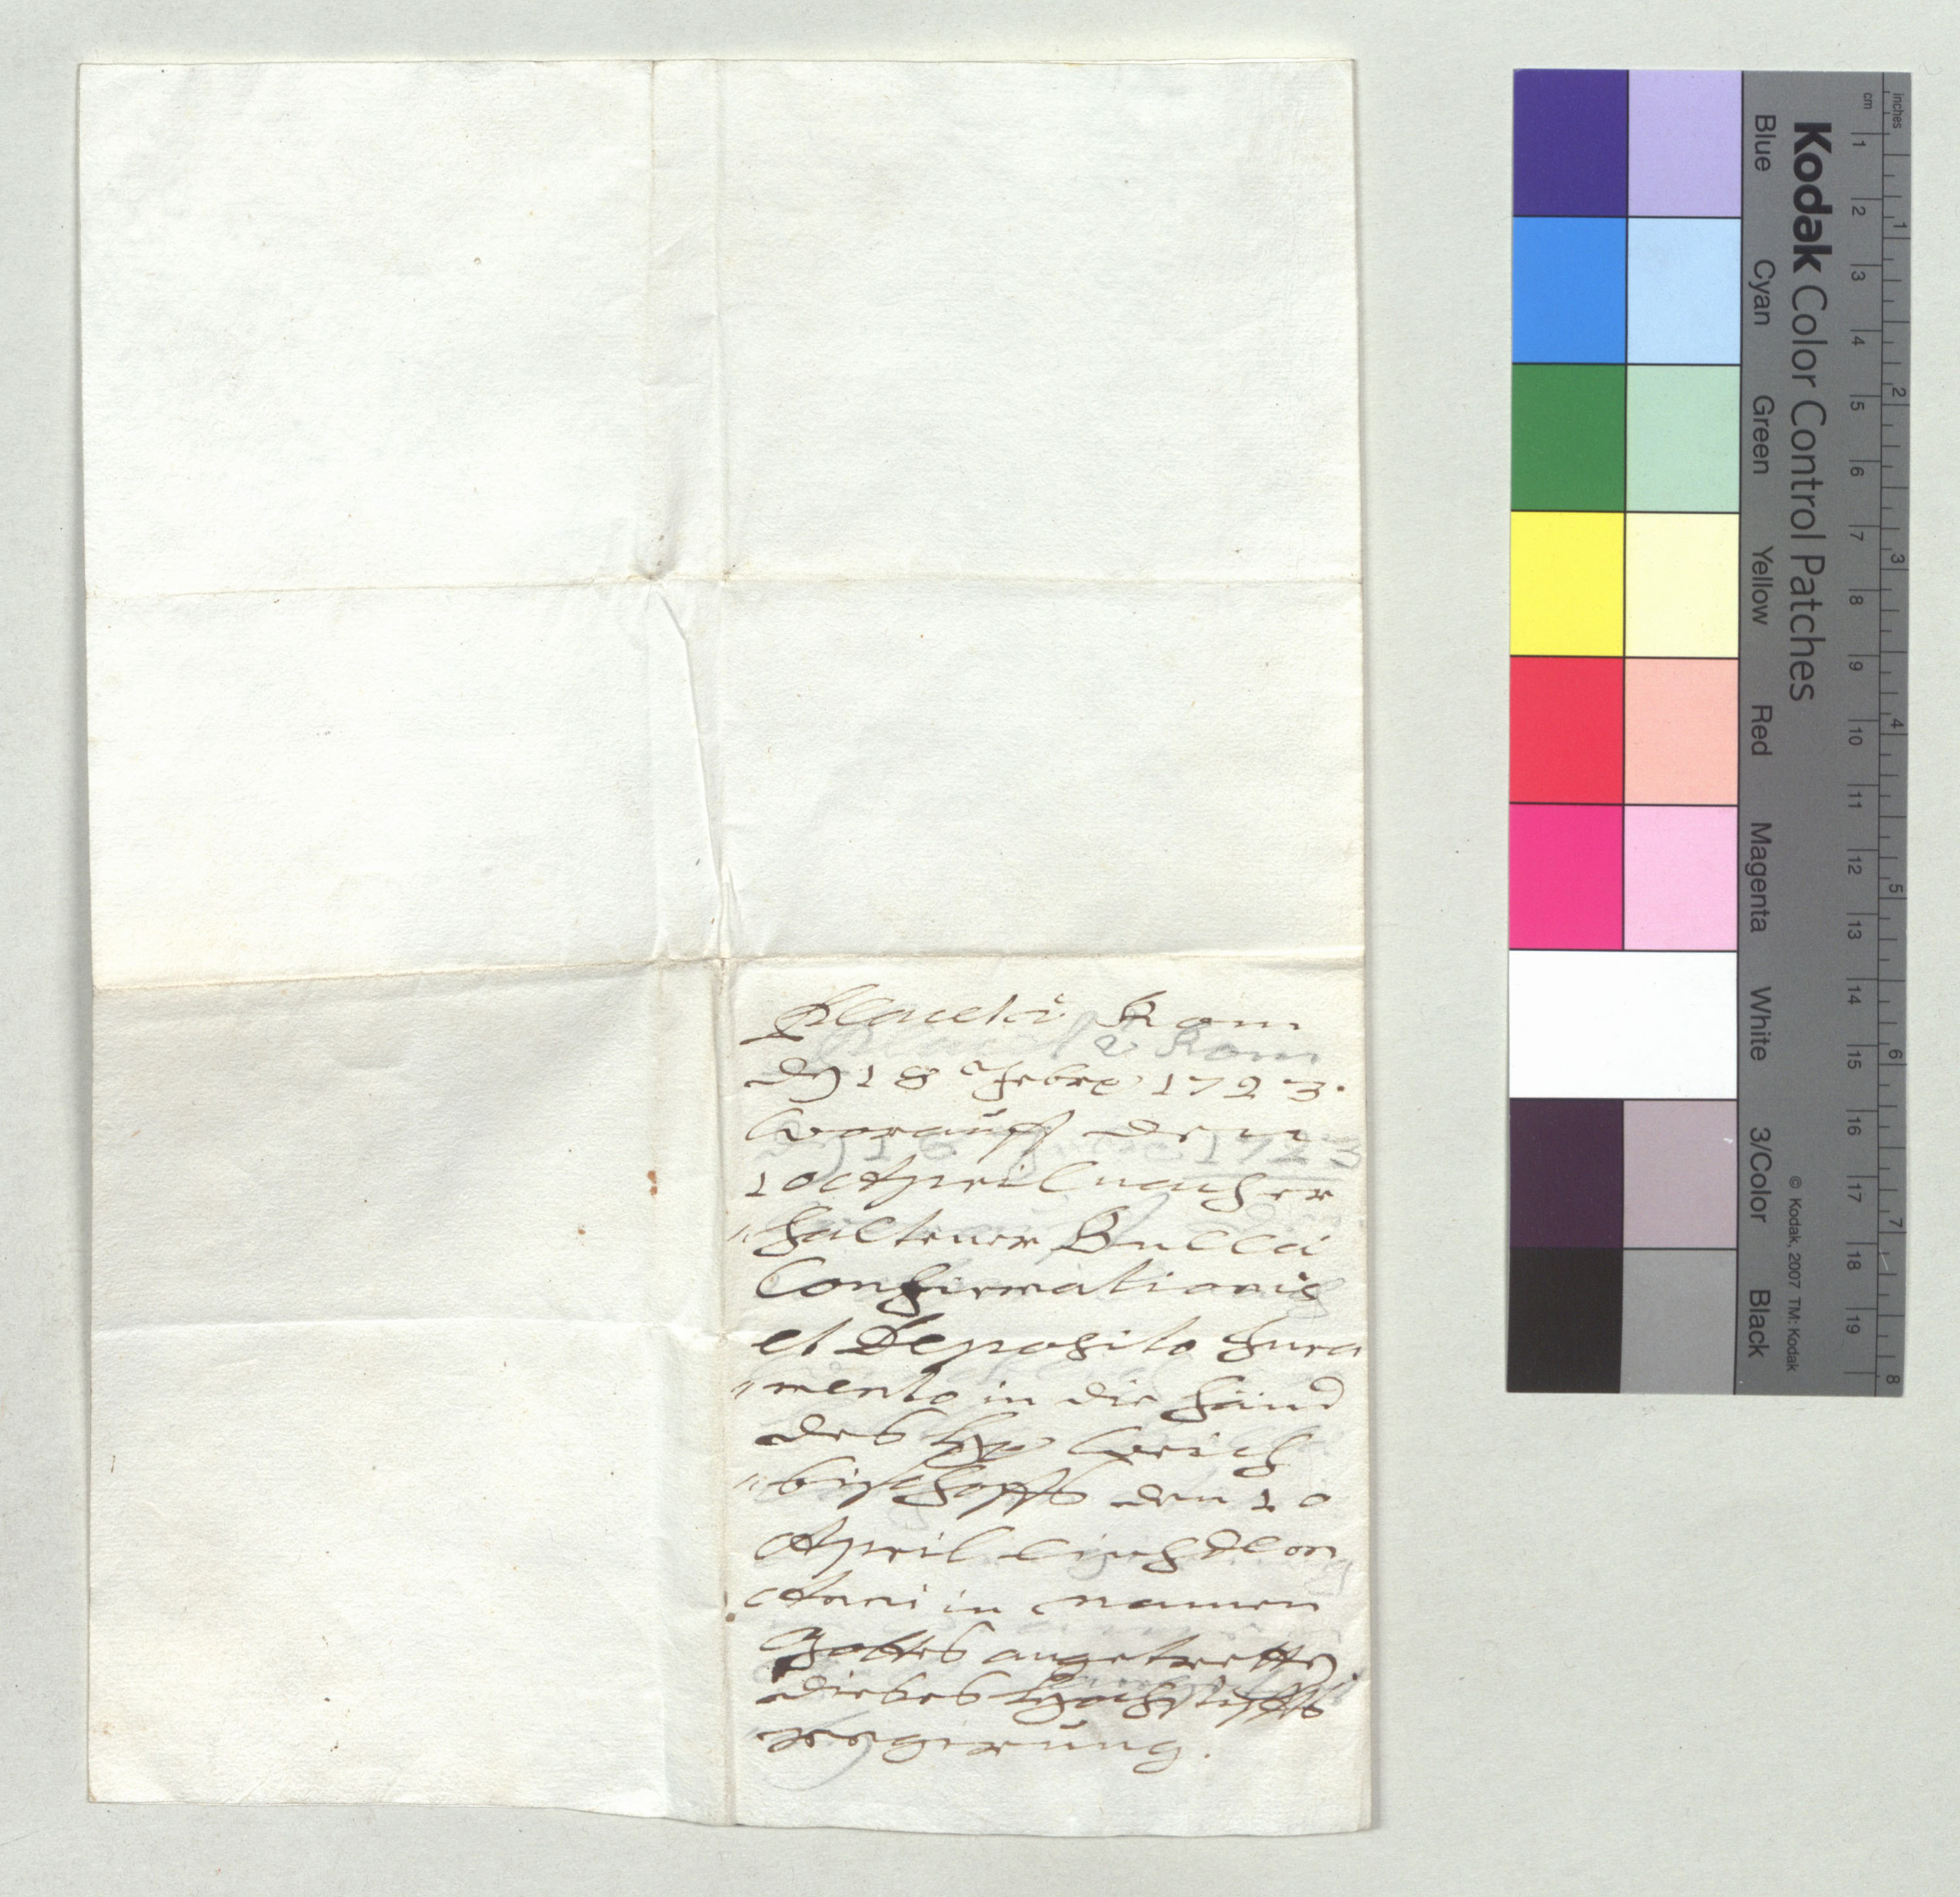 Placetù Rom
dẽ 18 Febrˢ 1723.
worauff den
10 April nach er
"haltener Bulla
Confirmationis
et Deposito Jura
"mento in die händ
des H. Weich
"bischoffs den 10
April eiusdem
Anni in namen
Gottes angetretten
dieses Hochstiffts
regierung.
Kodak Color Control Patches
Blue Cyan Green Yellow Red Magenta White 3/Color Black
© Kodak, 2007 TM: Kodak
inches 1 2 3 4 5 6 7 8
cm 1 2 3 4 5 6 7 8 9 10 11 12 13 14 15 16 17 18 19